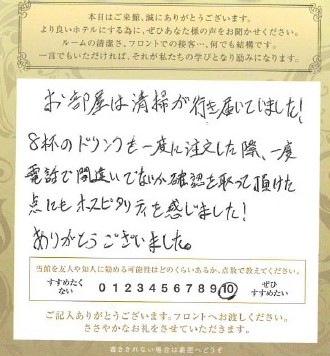 本日はご来館、誠にありがとうございます。
より良いホテルにする為に、ぜひあなた様の声をお聞かせください。
ルームの清潔さ、フロントでの接客…、何でも結構です。
一言でもいただければ、それが私たちの学びとなり励みになります。
お部屋は清掃が行き届いていました!
8杯のドリンクを一度に注文した際、一度
電話で間違いでないか確認を取って頂けた
点にもホスピタリティを感じました!
ありがとうございました。
当館を友人や知人に勧める可能性はどのくらいあるか、点数で教えてください。
すすめたくない 0 1 2 3 4 5 6 7 8 9 10 ぜひすすめたい
ご記入ありがとうございます。フロントへお渡しください。
ささやかなお礼をさせていただきます。
書ききれない場合は裏面へどうぞ